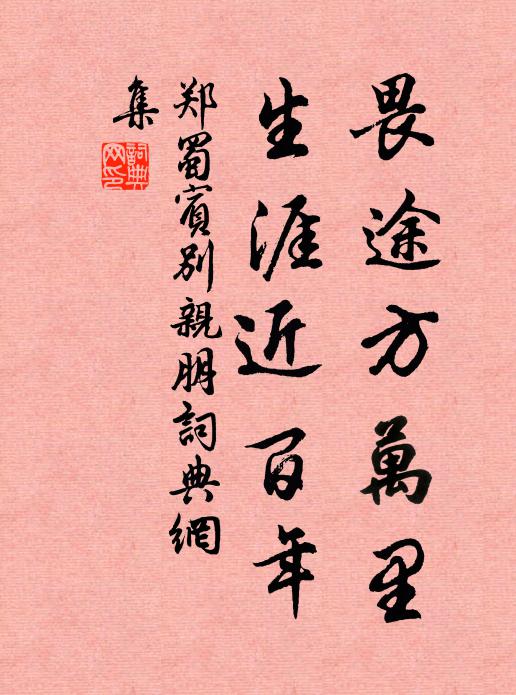 畏途方萬里
生涯近百年
郑蜀賓别親朋詞典網
集
詞典網印